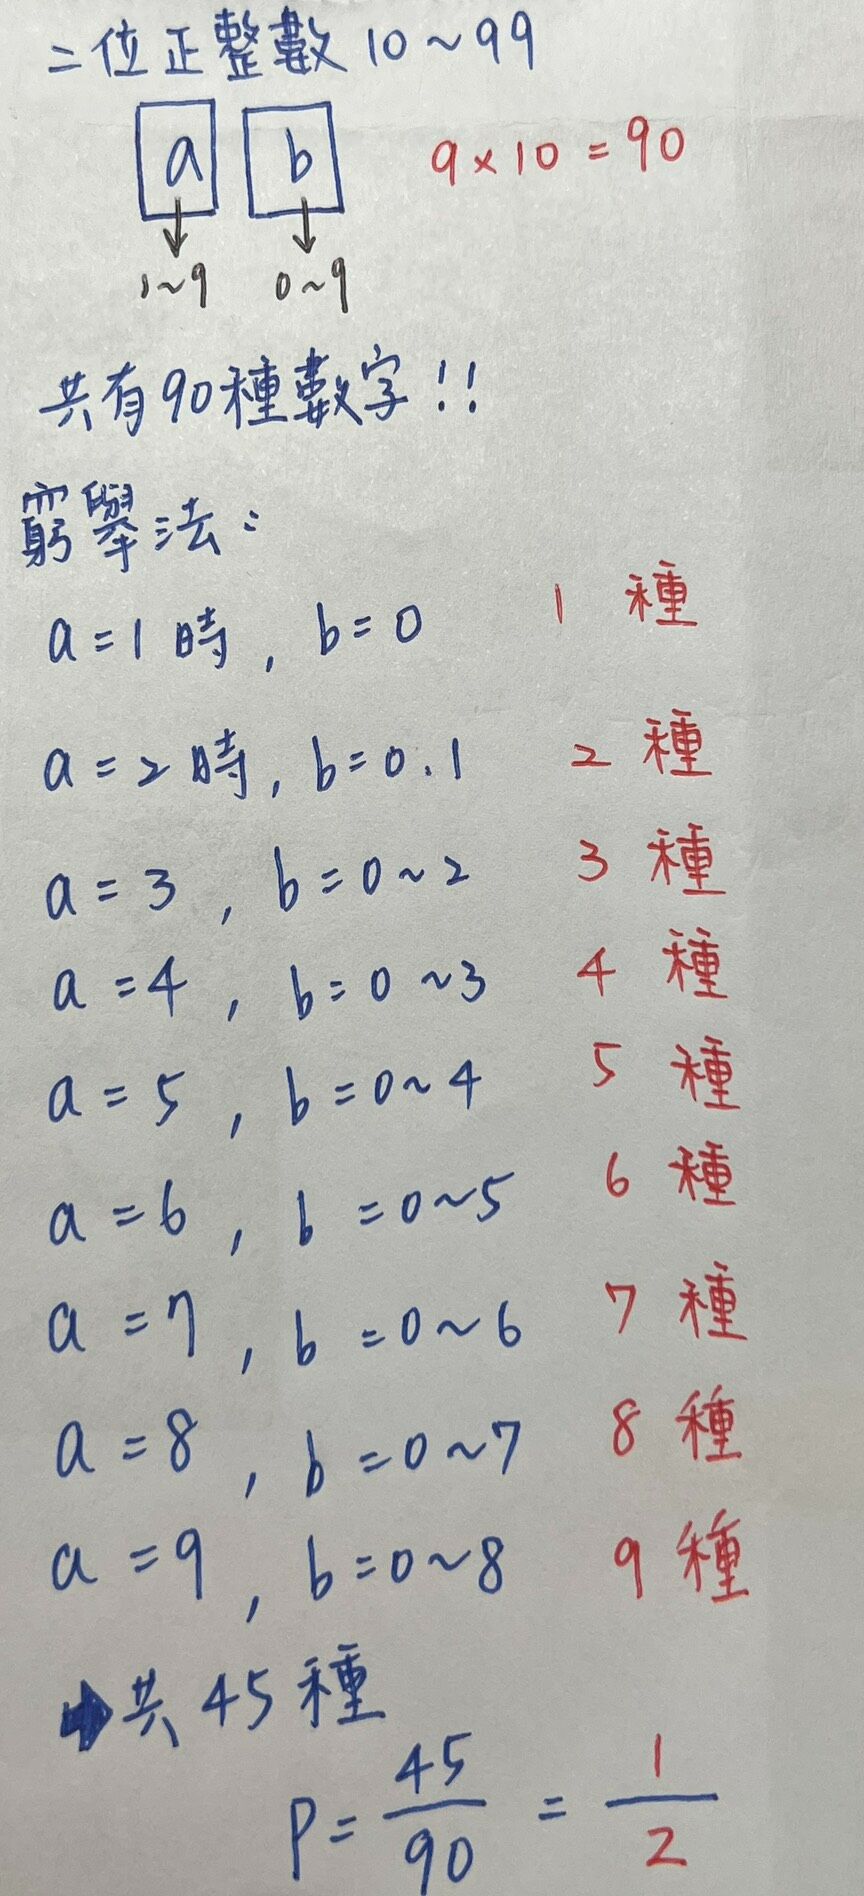 二位正整數 10~99
a b 9×10=90
1~9 0~9
共有90種數字!!
窮舉法:
a=1時, b=0 1種
a=2時, b=0.1 2種
a=3, b=0~2 3種
a=4, b=0~3 4種
a=5, b=0~4 5種
a=6, b=0~5 6種
a=7, b=0~6 7種
a=8, b=0~7 8種
a=9, b=0~8 9種
➡共45種
P=45/90=1/2